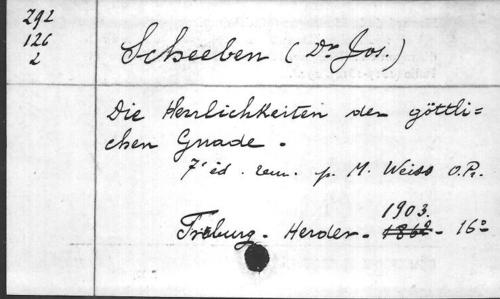 292
126
2
Scheeben (Dr Jos.)
Die Herrlichkeiten der göttli=
chen Gnade.
7e éd. revu. p. M. Weiss O.P.
1903.
Freburg - Herder - 16º